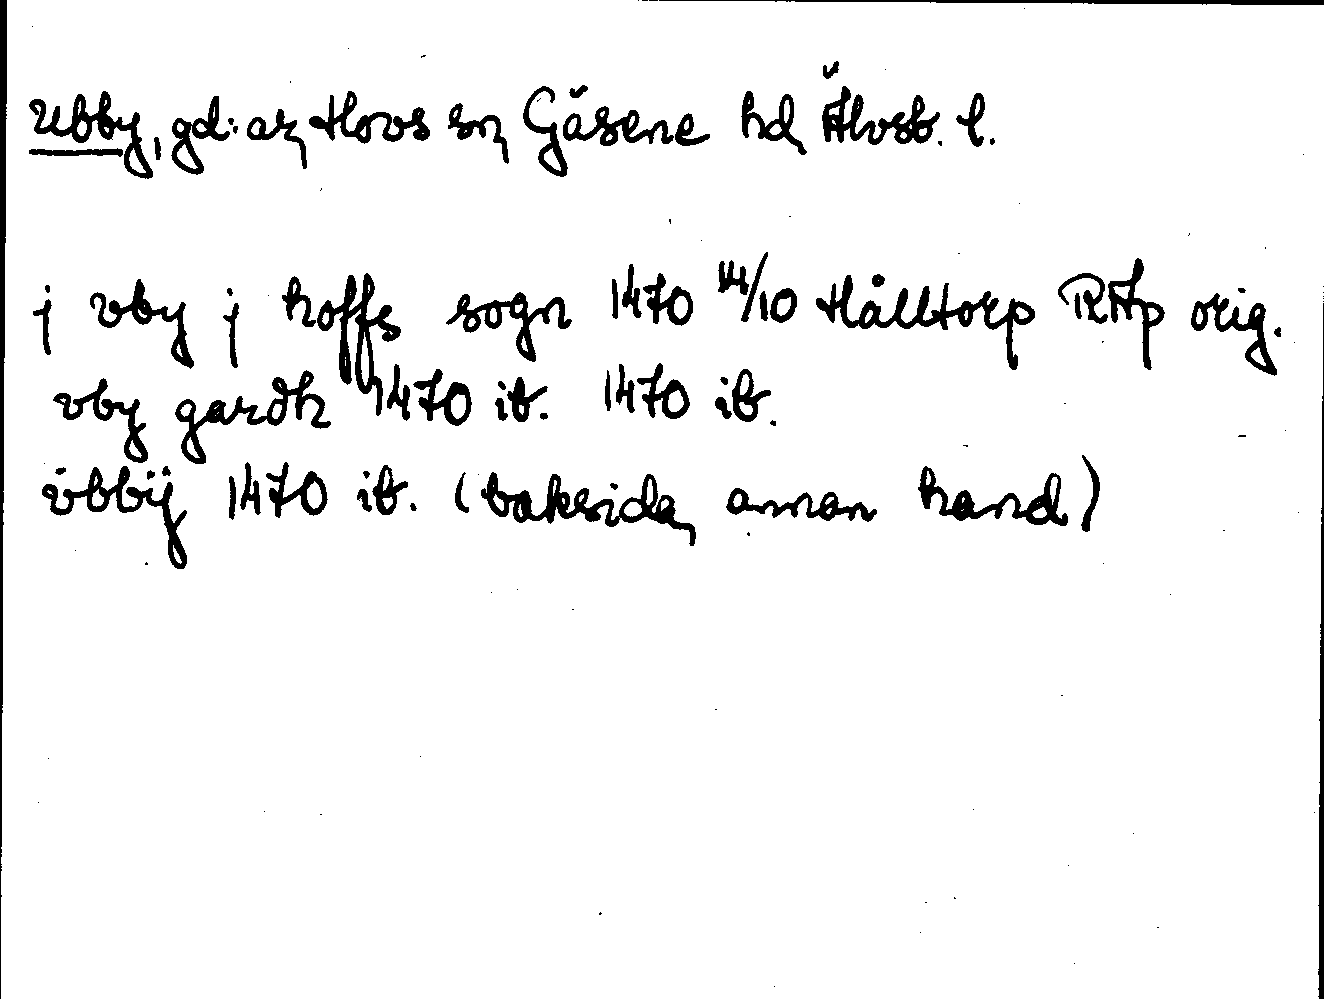 Ubby, gd:ar, Hovs sn, Gäsene hd, Älvsb. l.
j vby j hoffs sogn 1470 14/10 Hålltorp RAp orig.
vby gardh 1470 ib. 1470 ib.
vbbÿ 1470 ib. (baksida, annan hand)